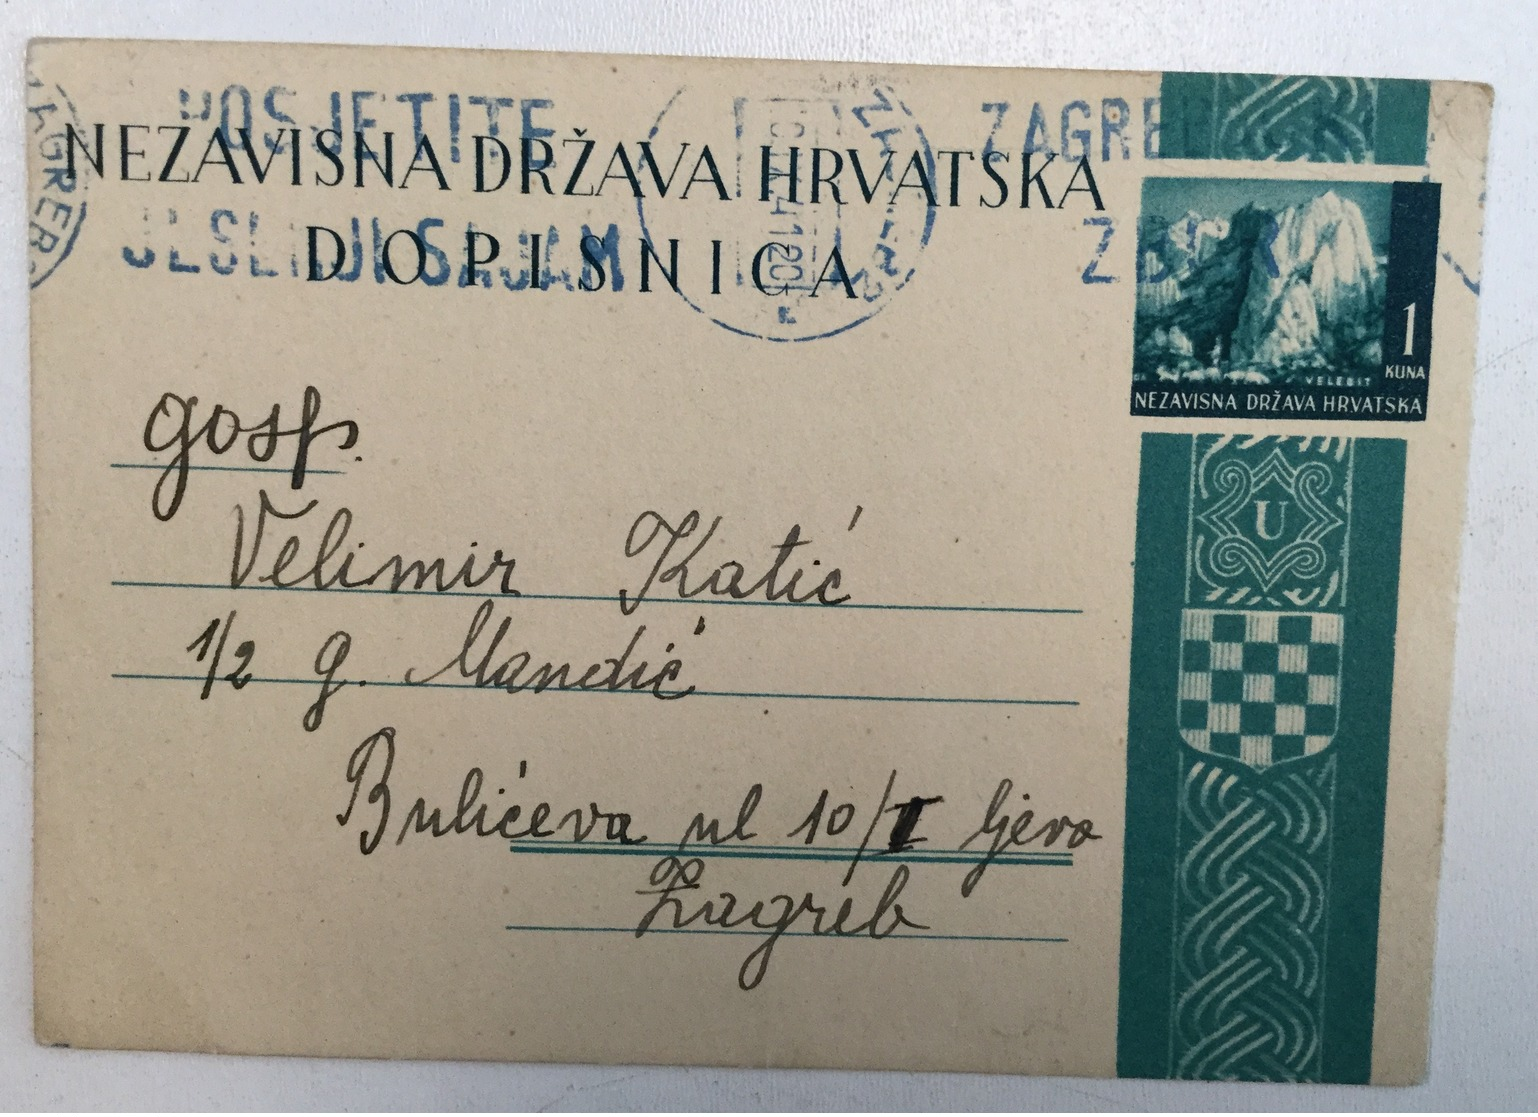 POSJETITE ZAGREBAČKI
JESENJI SAJAM ZBOR
NEZAVISNA DRŽAVA HRVATSKA
DOPISNICA
ZAGREB
1
KUNA
VELEBIT
NEZAVISNA DRŽAVA HRVATSKA
U
gosp.
Velimir Katić
1/2 g. Mandić
Bulićeva ul 10/II ljevo
Zagreb